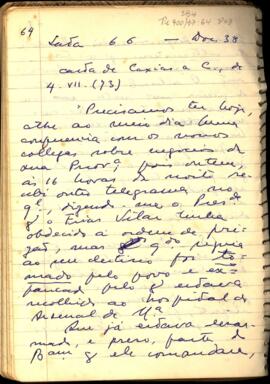 64
Lata 66 — Doc. 38
carta de Caxias a C., de
4.VII.(73)
"Precisamos ter hoje,
athe ao meio dia huma
conferencia com os nossos
collegas, sobre negocios de
sua Provª, pois ontem,
as 16 horas da noite re
cebi outro telegrama no
ql, dizendo-me o Presde
q o Frias Vilar tinha
obedecido a ordem de pri
são, mas qdo seguia
ao seu destino foi to-
mado pelo povo e es-
pancado pelo q estava
recolhido ao hospital do
Arsenal de Mª
Que já estava desar
mado, e preso, parte do
Bam q ele comandava,